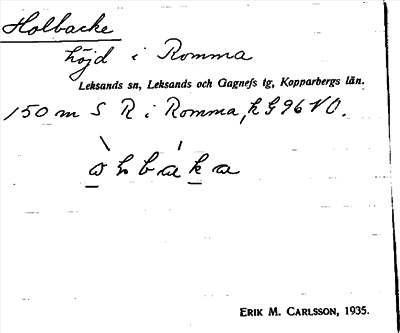 Holbacke
höjd i Romma
Leksands sn, Leksands och Gagnefs tg, Kopparbergs län.
150 m S R i Romma, k G96 V O.
ohbaka
ERIK M. CARLSSON, 1935.